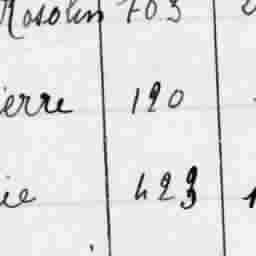 Rosolin 703
ierre 120
ie 423